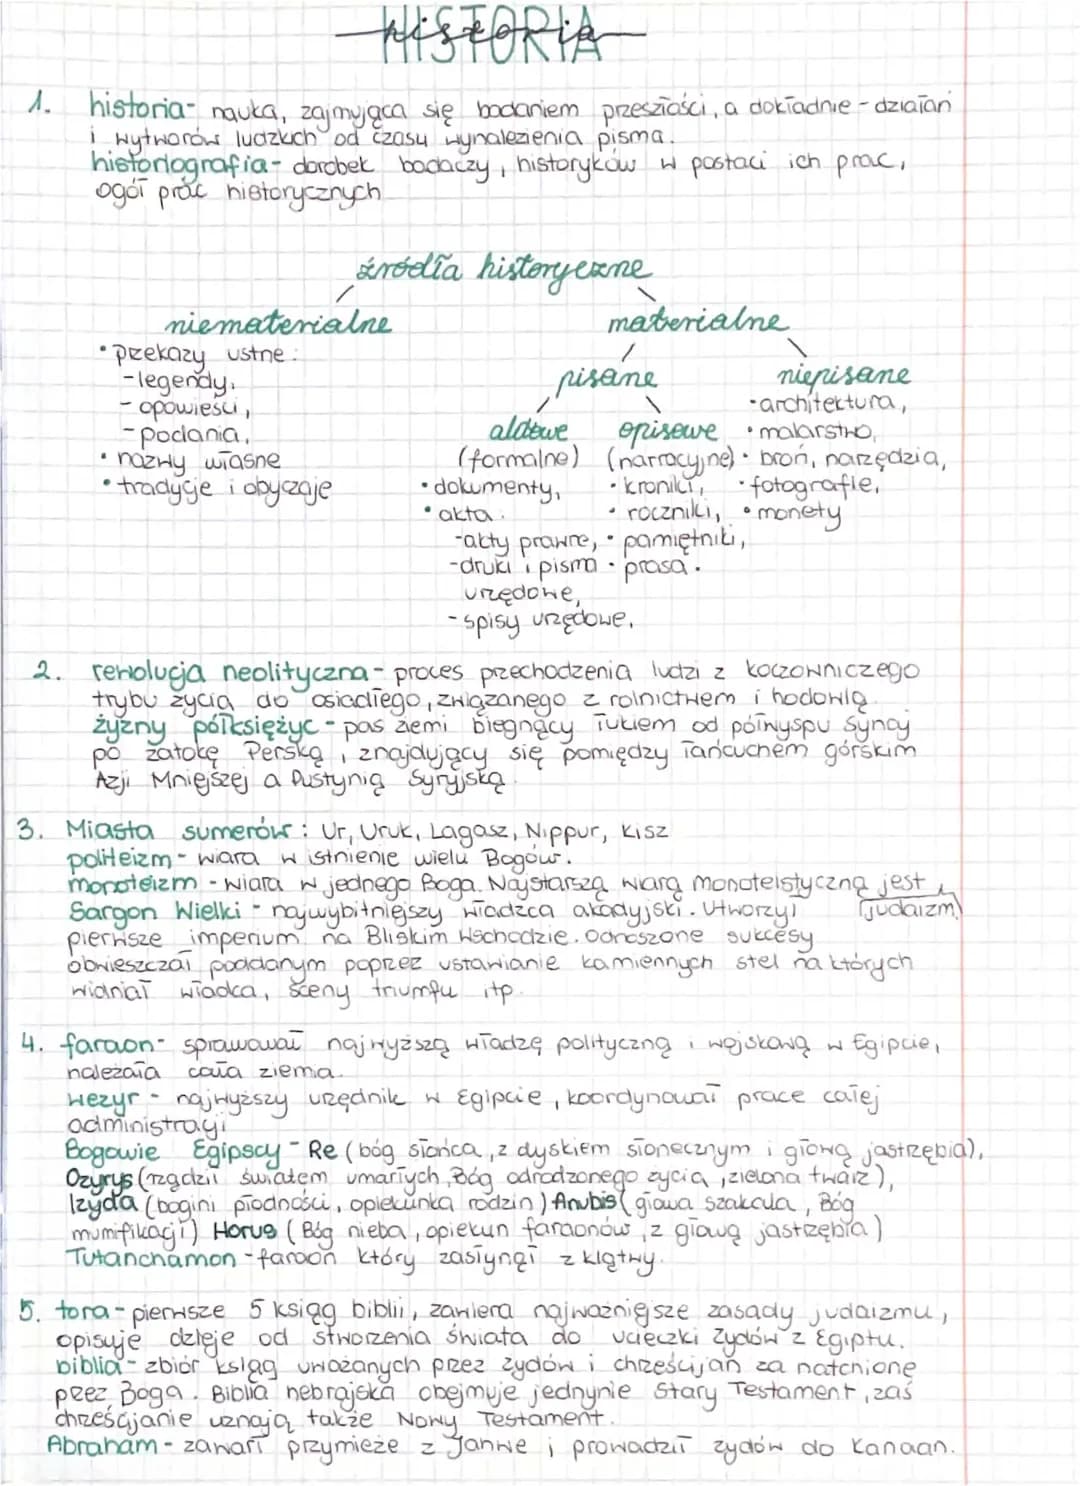 HISTORIA
historia
1. historia- nauka, zajmująca się badaniem przeszłości, a dokładnie - działań
i wytworów ludzkich od czasu wynalezienia pisma.
historiografia- dorobek badaczy, historyków w postaci ich prac,
ogół prac historycznych
źródła historyczne
niematerialne
• przekazy ustne:
- legendy,
- opowieści,
- podania,
• nazwy własne
• tradycje i obyczaje
materialne
pisane
aktowe
(formalne)
• dokumenty,
• akta:
- akty prawne,
- druki i pisma
urzędowe,
- spisy urzędowe,
opisowe
(narracyjne)
• kroniki,
• roczniki,
• pamiętniki,
• prasa.
niepisane
• architektura,
• malarstwo,
• broń, narzędzia,
• fotografie,
• monety
2. rewolucja neolityczna- proces przechodzenia ludzi z koczowniczego
trybu życia do osiadłego, związanego z rolnictwem i hodowlą
żyzny półksiężyc - pas ziemi biegnący łukiem od półwyspu Synaj
po zatokę Perską, znajdujący się pomiędzy łańcuchem górskim
Azji Mniejszej a Pustynią Syryjską.
3. Miasta sumerów: Ur, Uruk, Lagasz, Nippur, Kisz
politeizm- wiara w istnienie wielu Bogów.
monoteizm - wiara w jednego Boga. Najstarszą wiarą monoteistyczną jest
judaizm
Sargon Wielki - najwybitniejszy władzca akadyjski. Utworzył
pierwsze imperium na Bliskim Wschodzie. Odnoszone sukcesy
obwieszczał poddanym poprzez ustawianie kamiennych stel na których
widniał władca, sceny triumfu itp.
4. faraon- sprawował najwyższą władzę polityczną i wojskową w Egipcie,
należała cała ziemia.
wezyr - najwyższy urzędnik w Egipcie, koordynował prace całej
administracji
Bogowie Egipscy - Re (bóg słońca, z dyskiem słonecznym i głową jastrzębia),
Ozyrys (rządził światem umarłych, Bóg odrodzonego życia, zielona twarz),
Izyda (bogini płodności, opiekunka rodzin) Anubis (głowa szakala, Bóg
mumifikacji) Horus (Bóg nieba, opiekun faraonów, z głową jastrzębia)
Tutanchamon - faraon który zasłynął z klątwy.
5. tora- pierwsze 5 ksiąg biblii, zawiera najważniejsze zasady judaizmu,
opisuje dzieje od stworzenia świata do ucieczki Żydów z Egiptu.
biblia- zbiór ksiąg uważanych przez żydów i chrześcijan za natchnione
przez Boga. Biblia hebrajska obejmuje jednynie Stary Testament, zaś
chrześcijanie uznają także Nowy Testament.
Abraham- zawarł przymieże z Jahwe i prowadził żydów do Kanaan.